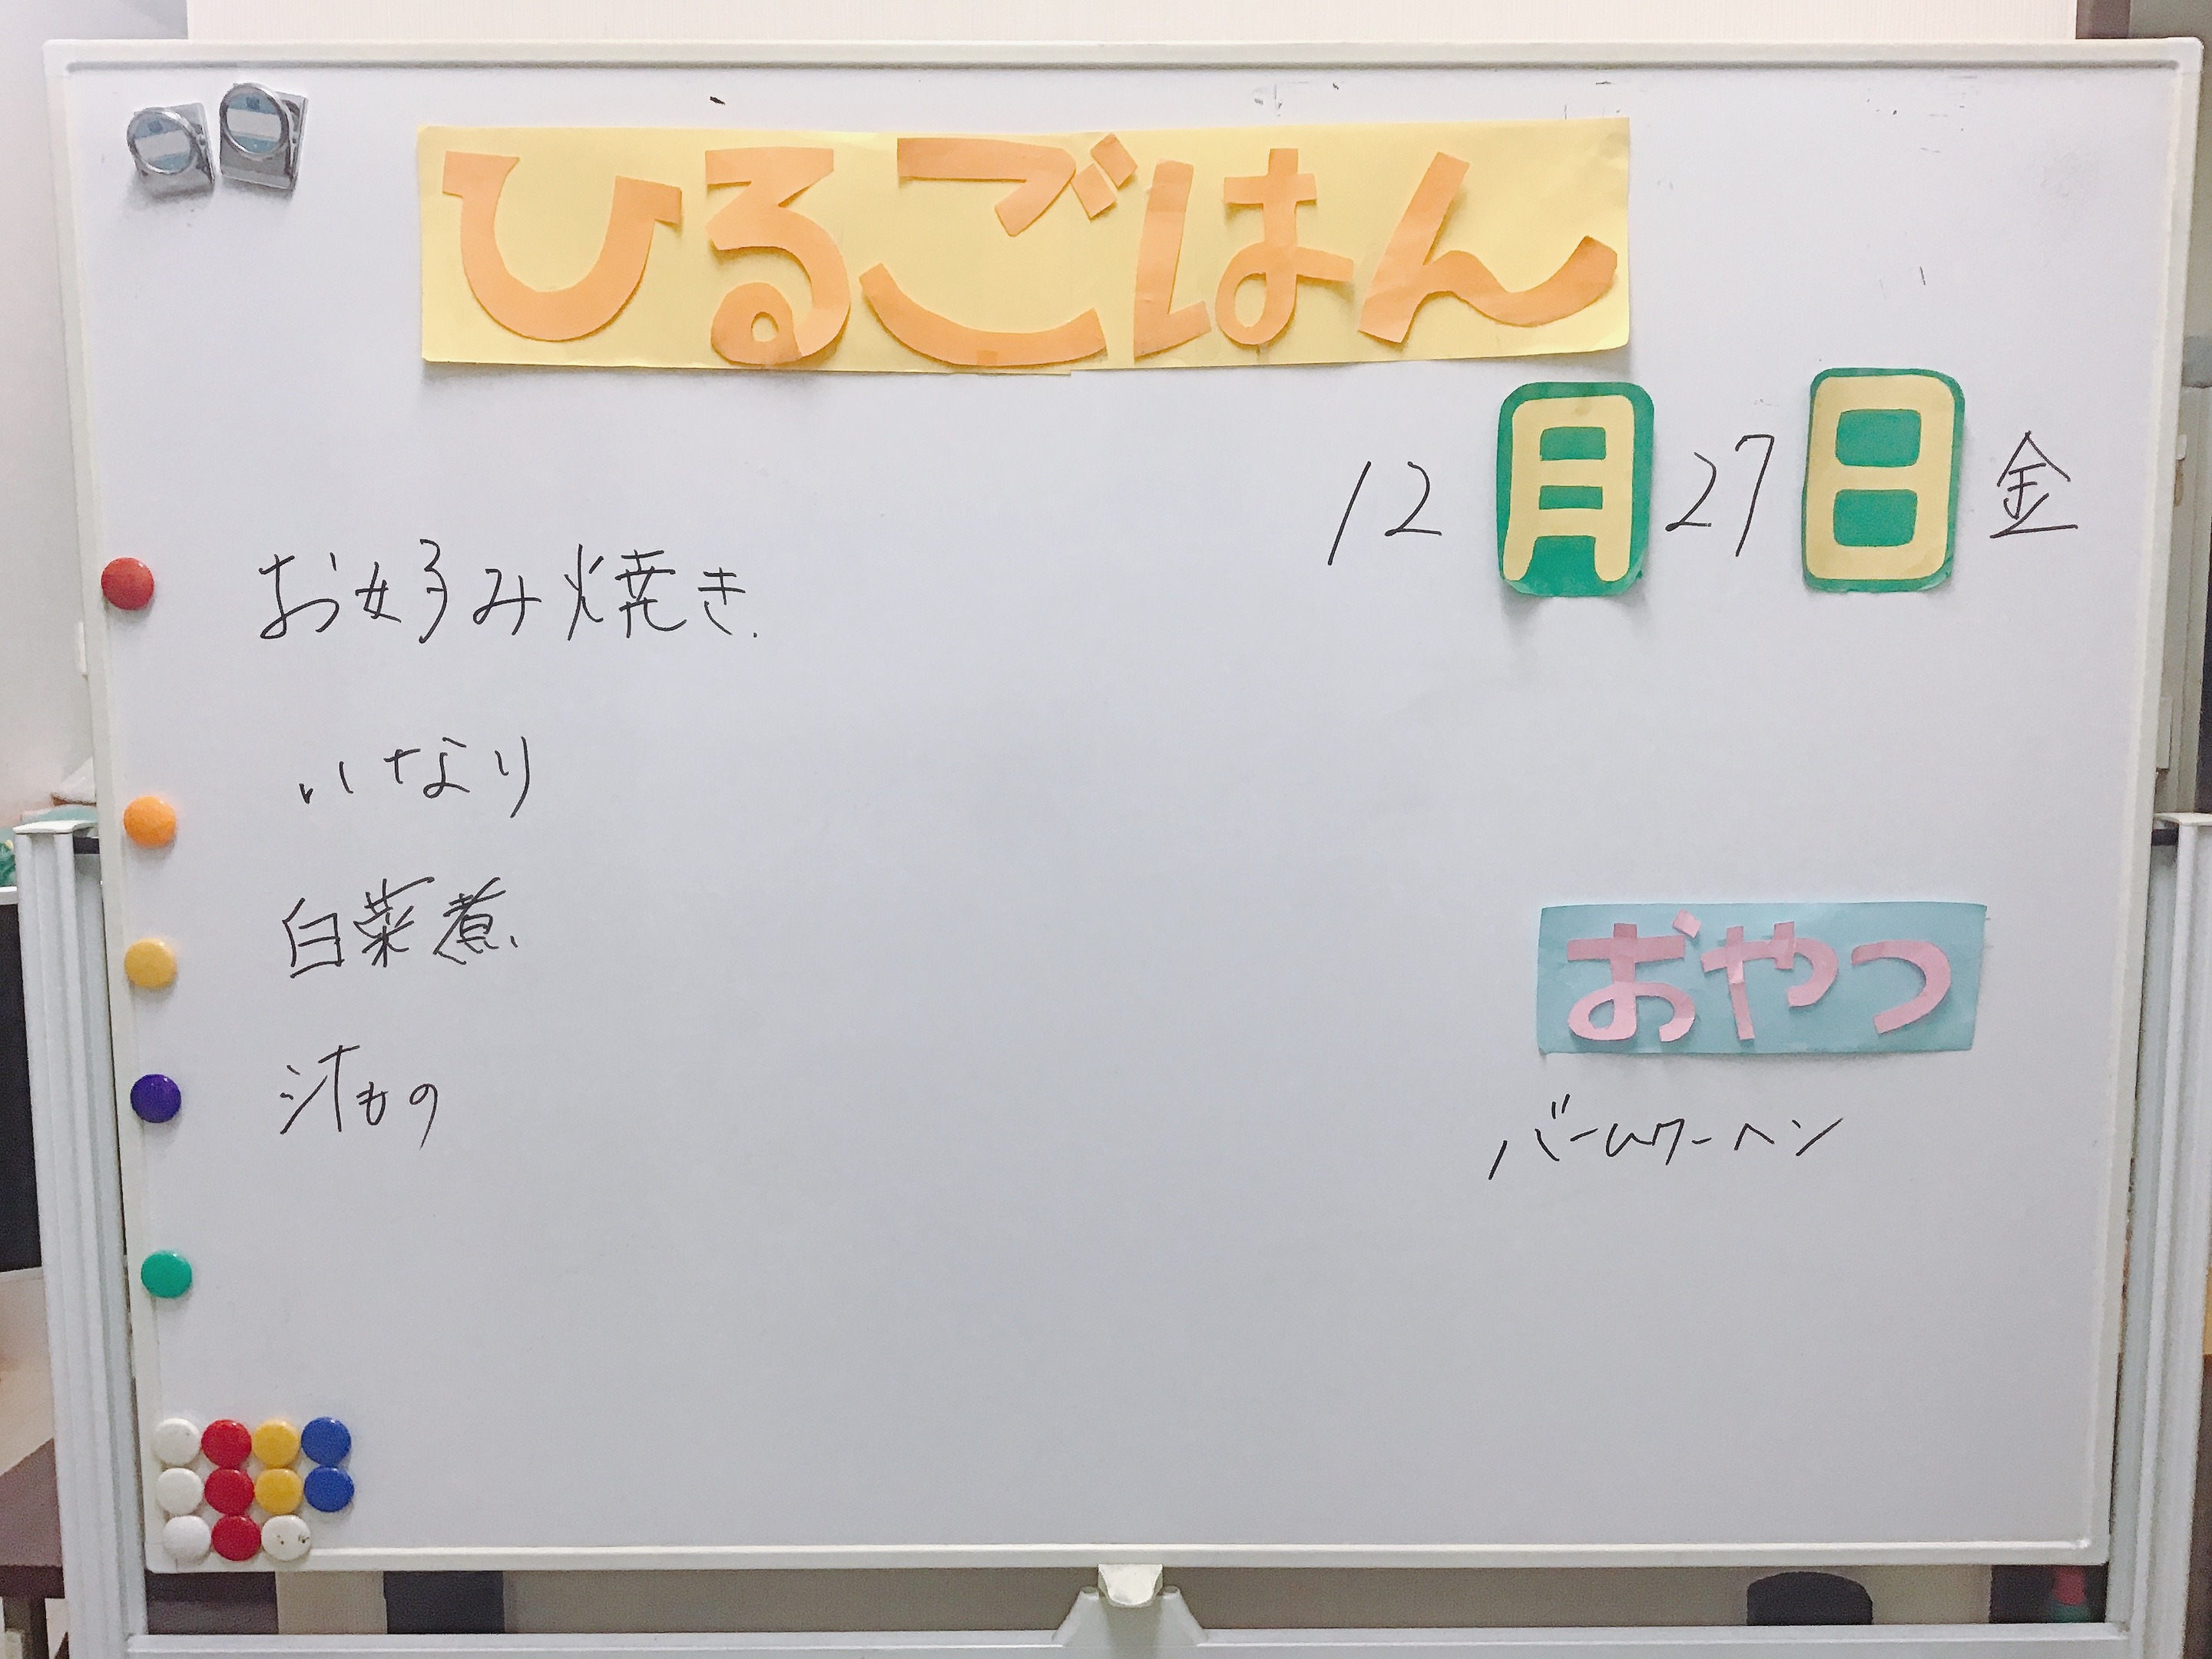 ひるごはん
12月27日 金
お好み焼き
いなり
白菜煮
汁もの
おやつ
バームクーヘン